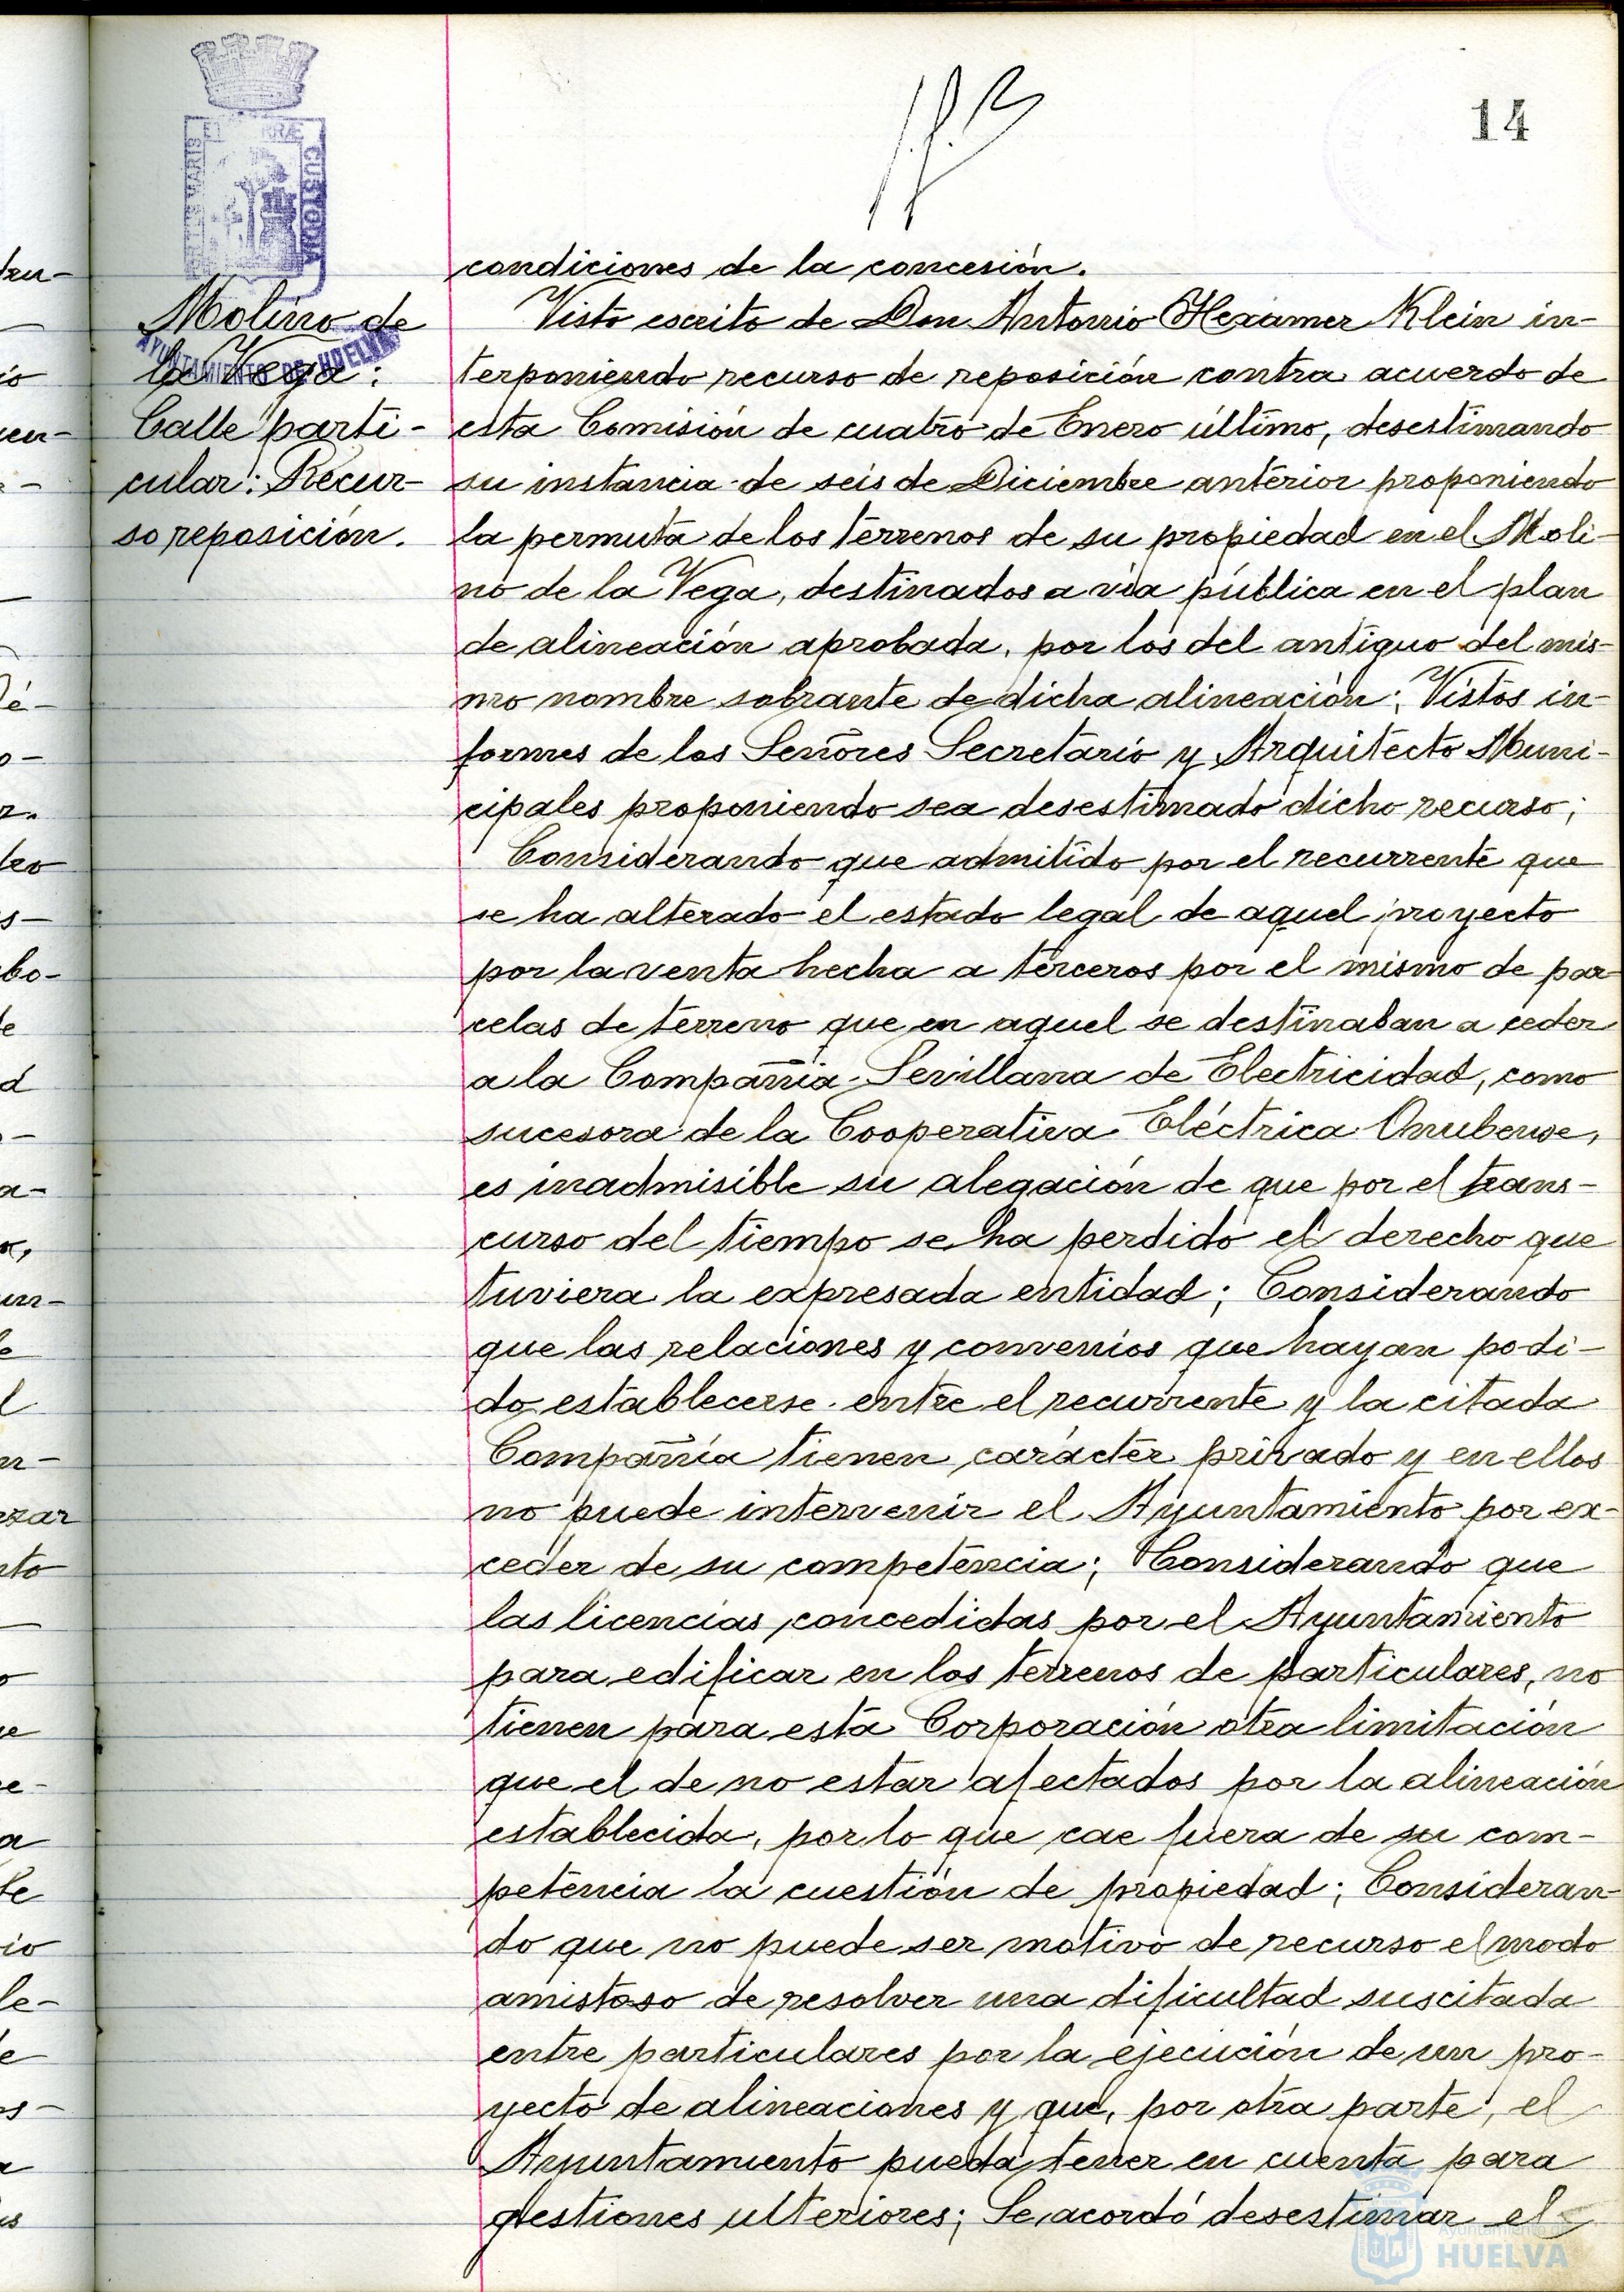 14
condiciones de la concesión.
Molino de
la Vega:
Calle parti-
cular: Recur-
so reposición.
Visto escrito de Don Antonio Hexamer Klein in-
terponiendo recurso de reposición contra acuerdo de
esta Comisión de cuatro de Enero último, desestimando
su instancia de seis de Diciembre anterior proponiendo
la permuta de los terrenos de su propiedad en el Moli-
no de la Vega, destinados a vía pública en el plan
de alineación aprobada, por los del antiguo del mis-
mo nombre sobrante de dicha alineación; Vistos in-
formes de los Señores Secretario y Arquitecto Muni-
cipales proponiendo sea desestimado dicho recurso;
Considerando que admitido por el recurrente que
se ha alterado el estado legal de aquel proyecto
por la venta hecha a terceros por el mismo de par
celas de terreno que en aquel se destinaban a ceder
a la Compañía Sevillana de Electricidad, como
sucesora de la Cooperativa Eléctrica Onubense,
es inadmisible su alegación de que por el trans-
curso del tiempo se ha perdido el derecho que
tuviera la expresada entidad; Considerando
que las relaciones y convenios que hayan podi-
do establecerse entre el recurrente y la citada
Compañía tienen carácter privado y en ellos
no puede intervenir el Ayuntamiento por ex-
ceder de su competencia; Considerando que
las licencias concedidas por el Ayuntamiento
para edificar en los terrenos de particulares, no
tienen para esta Corporación otra limitación
que el de no estar afectados por la alineación
establecida, por lo que cae fuera de su com-
petencia la cuestión de propiedad; Consideran-
do que no puede ser motivo de recurso el modo
amistoso de resolver una dificultad suscitada
entre particulares por la ejecución de un pro-
yecto de alineaciones y que, por otra parte, el
Ayuntamiento pueda tener en cuenta para
gestiones ulteriores; Se acordó desestimar el
AYUNTAMIENTO DE HUELVA
Ayuntamiento de
HUELVA